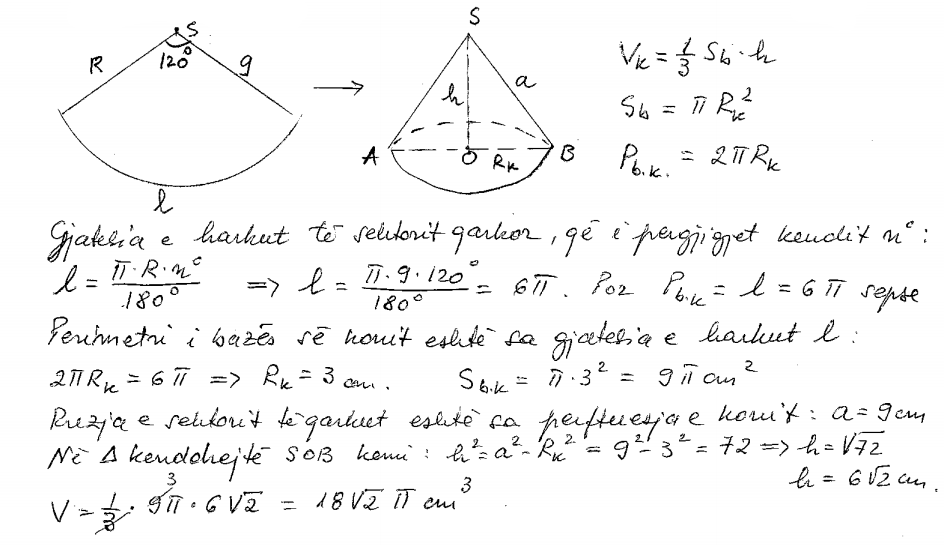 S
R 120° 9
l
S
h a
A O R_k B
V_k = 1/3 S_b · h
S_b = π R_k²
P_b.k. = 2π R_k
Gjatesia e harkut të sektorit qarkor, që i pergjigjet kendit n°:
l = π·R·n°/180° => l = π·9·120°/180° = 6π. Por P_b.k = l = 6π sepse
Perimetri i bazës së konit eshtë sa gjatesia e harkut l:
2πR_k = 6π => R_k = 3 cm. S_b.k = π·3² = 9π cm²
Rrezja e sektorit të qarkut eshtë sa perftuesja e konit: a = 9 cm
Në Δ kenddrejtë SOB kemi: h² = a² - R_k² = 9² - 3² = 72 => h = √72
h = 6√2 cm.
V = 1/3 · 9π · 6√2 = 18√2 π cm³